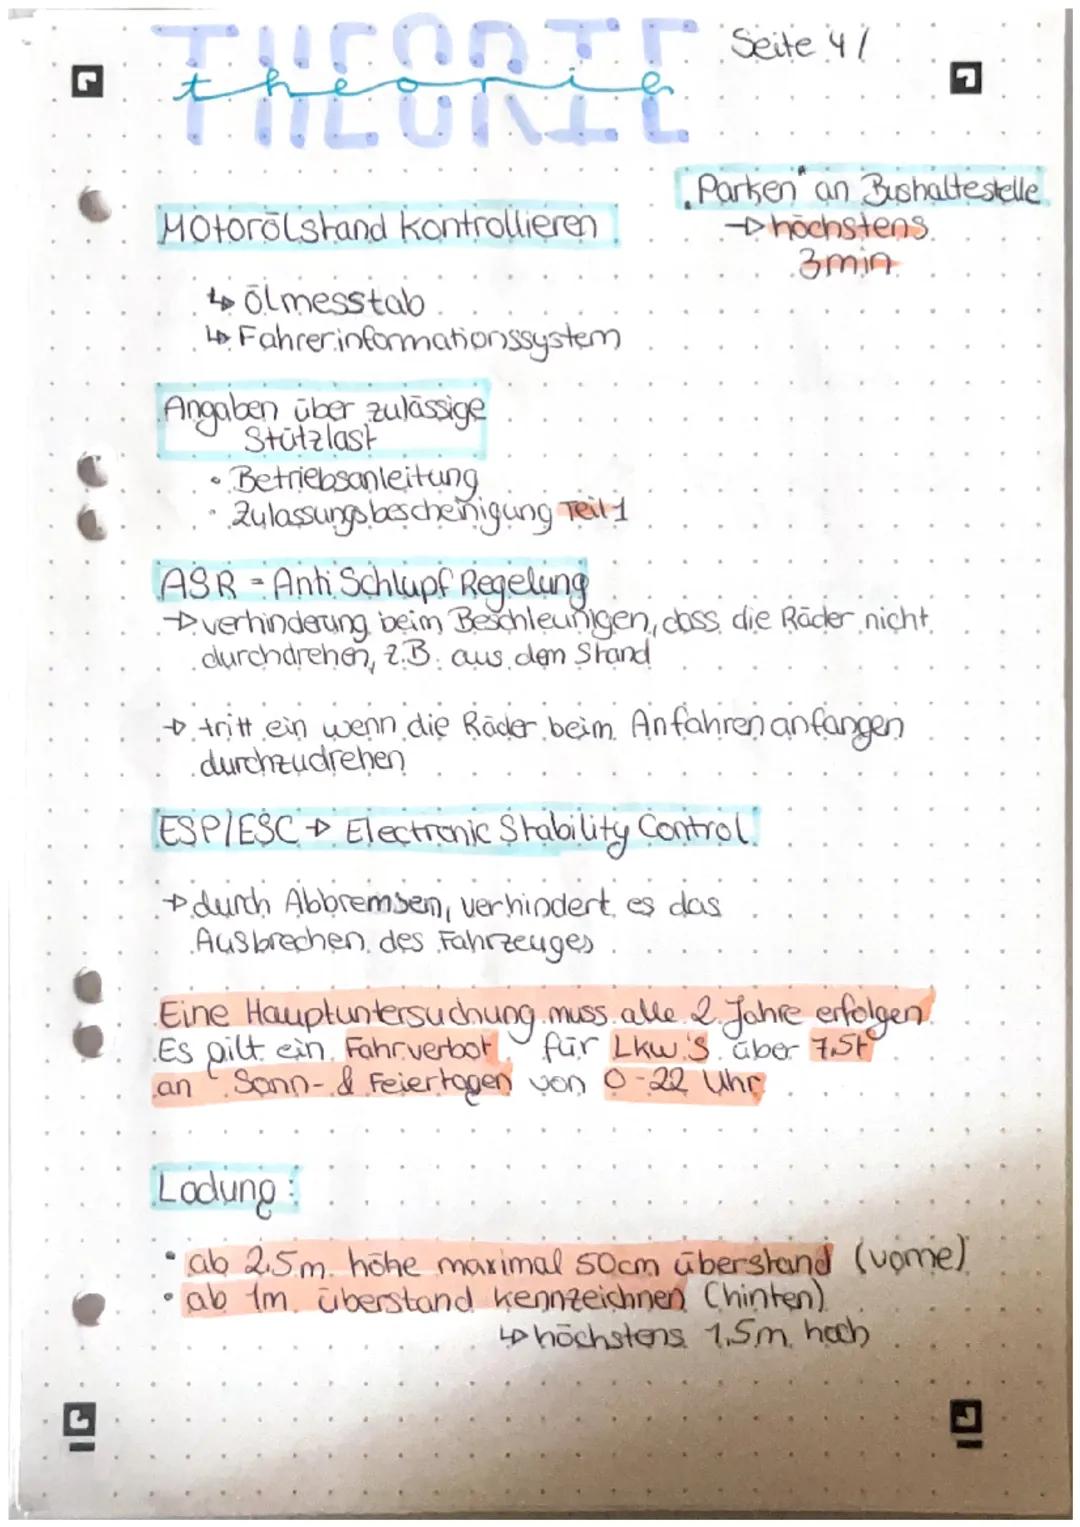 THEORIE
theorie
Seite 4/
"Parken" an Bushaltestelle
→ höchstens
3min
Motorölstand kontrollieren
↳ Ölmesstab
↳ Fahrerinformationssystem
Angaben über zulässige
Stützlast
• Betriebsanleitung
• Zulassungsbescheinigung Teil 1
ASR = Anti Schlupf Regelung
→ verhinderung beim Beschleunigen, dass die Räder nicht
durchdrehen, z.B. aus dem Stand
→ tritt ein wenn die Räder beim Anfahren anfangen
durchzudrehen
ESP/ESC → Electronic Stability Control
→ durch Abbremsen, verhindert es das
Ausbrechen des Fahrzeuges
Eine Hauptuntersuchung muss alle 2 Jahre erfolgen
Es gilt ein Fahrverbot für Lkw's über 7,5t
an Sonn- & Feiertagen von 0-22 Uhr
Ladung:
• ab 2,5m höhe maximal 50cm überstand (vorne)
• ab 1m überstand kennzeichnen (hinten)
↳ höchstens 1,5m hoch